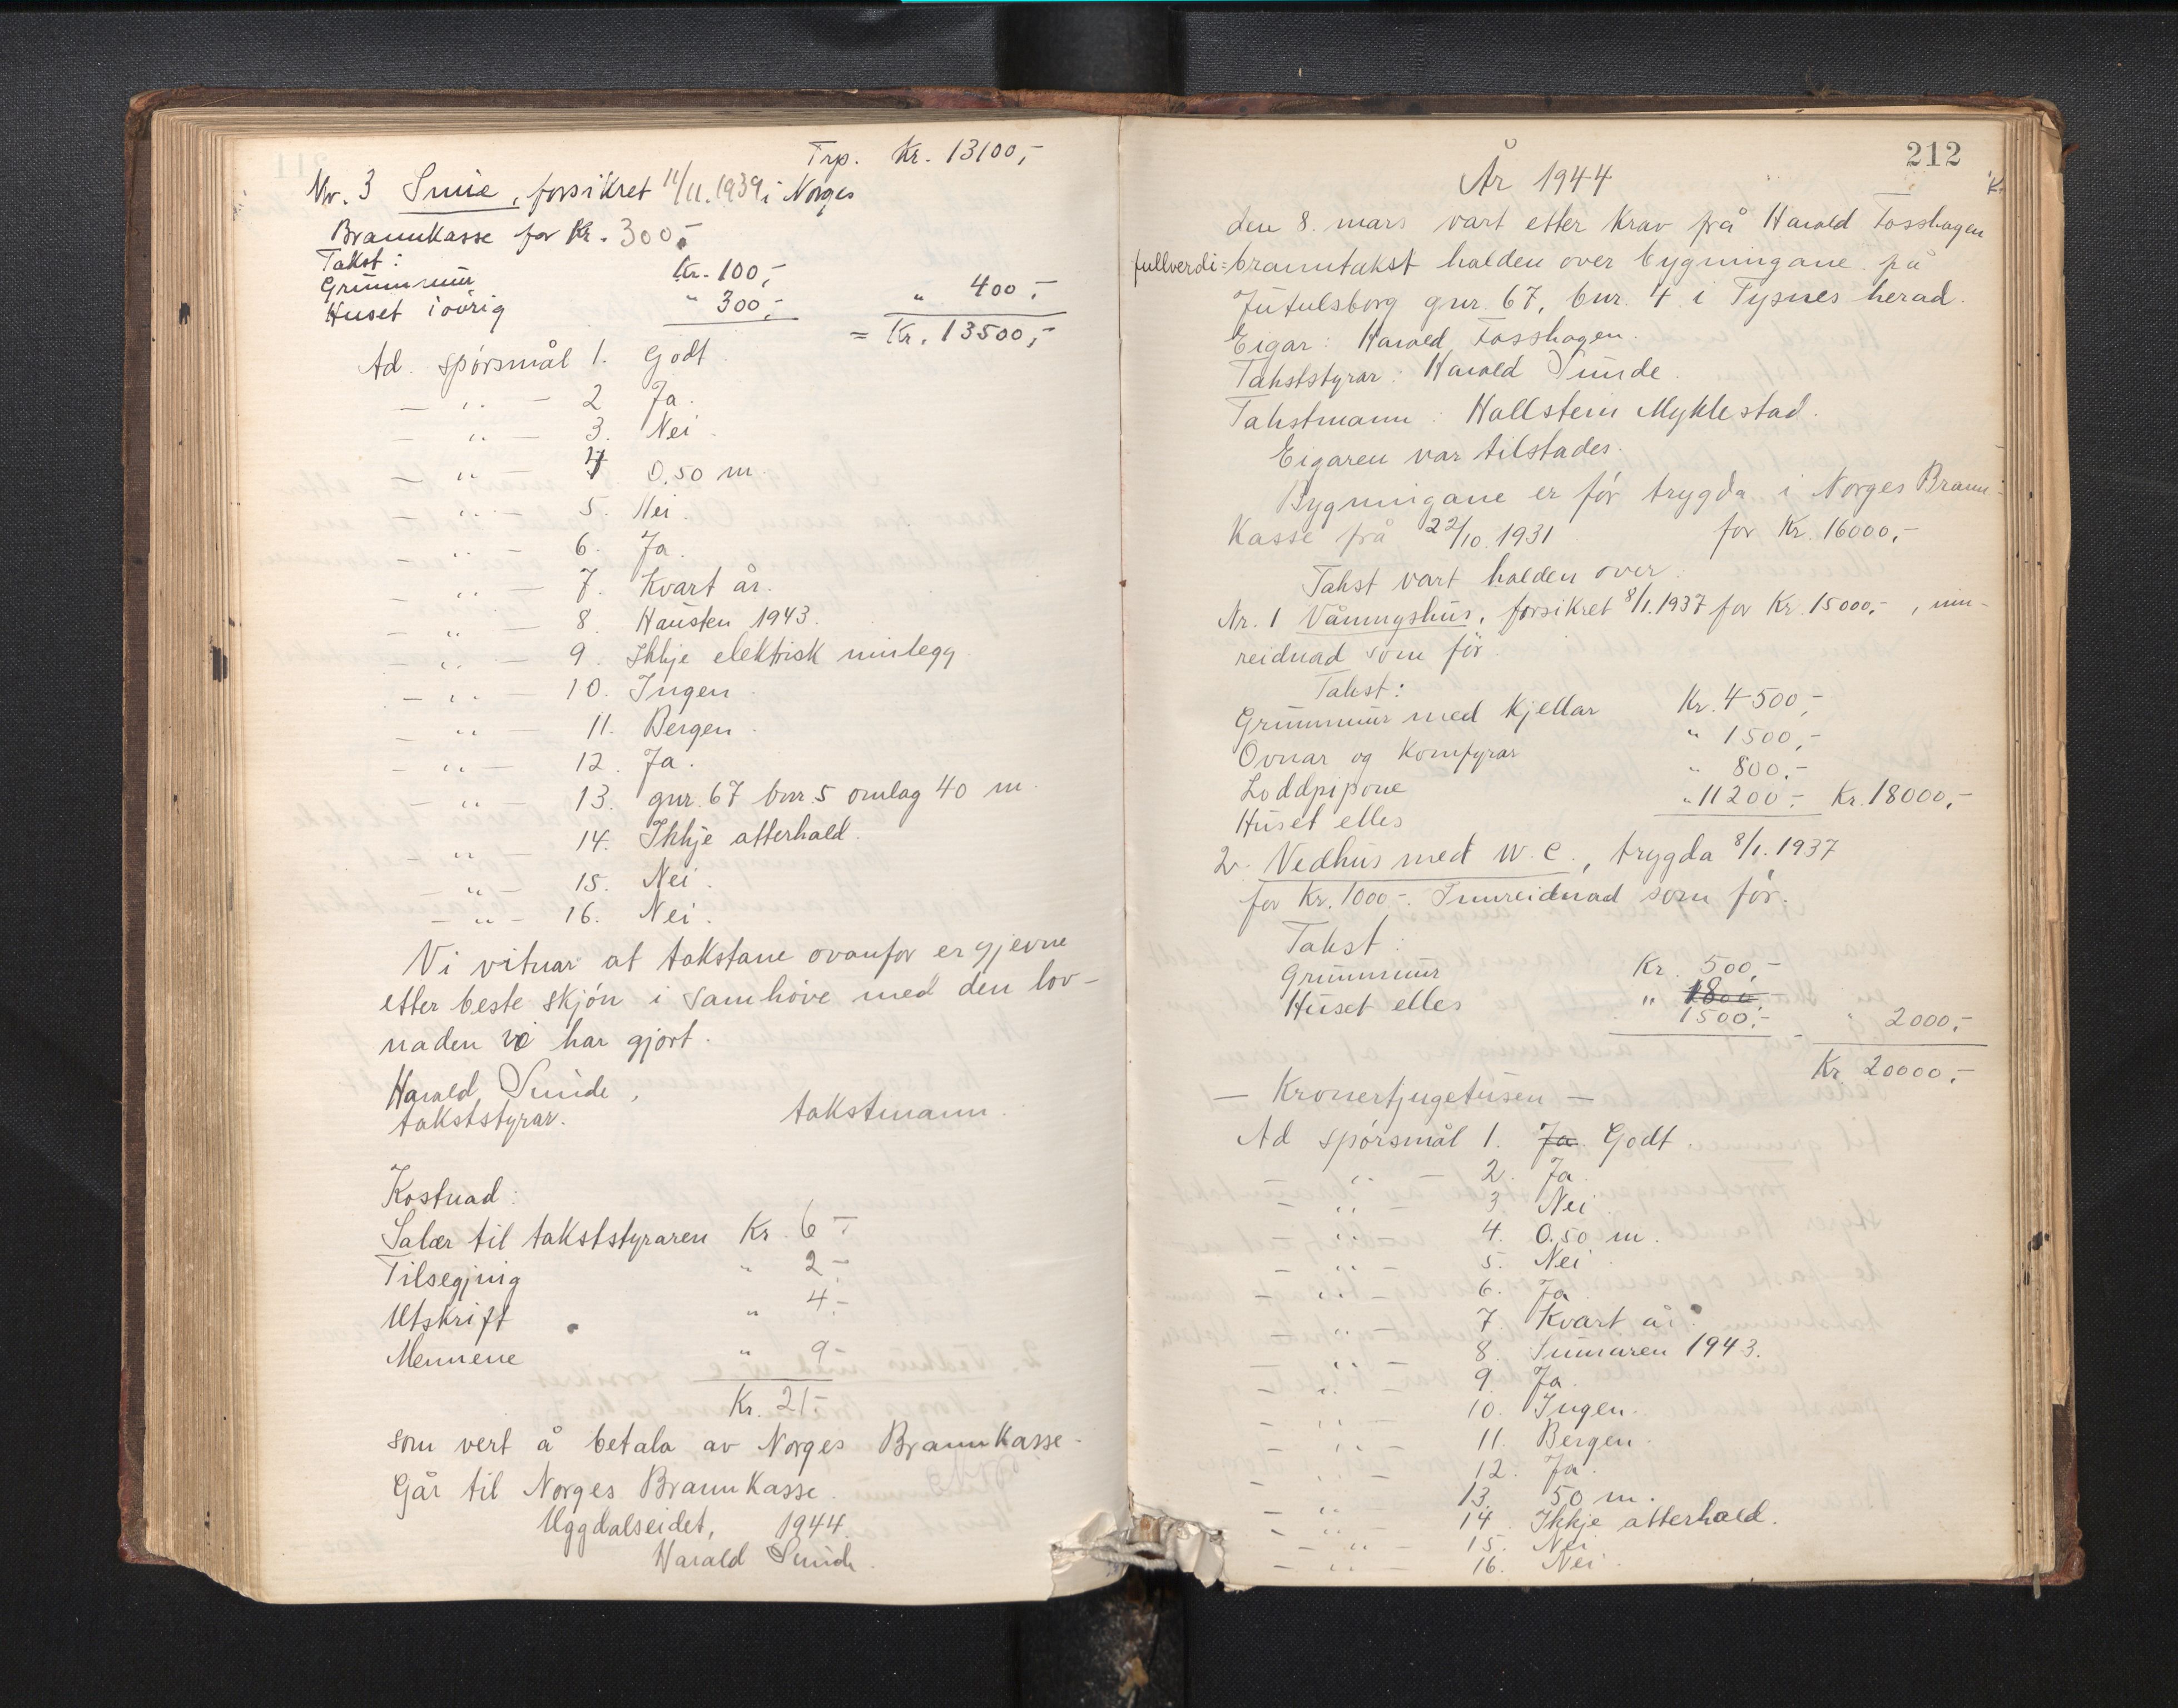 Trp. Kr. 13100,-
Nr. 3 Smie, forsikret 11/11.1939 i Norges
Brannkasse for Kr. 300,-
Takst:
Grunnmur Kr. 100,-
Huset i øvrig " 300,- " 400,-
= Kr. 13500,-
Ad. spørsmål 1. Godt.
— " — 2 Ja.
— " — 3. Nei.
— " — 4 0.50 m.
— " — 5. Nei.
— " — 6. Ja.
— " — 7. Kvart år.
— " — 8. Hausten 1943.
— " — 9. Ikkje elektrisk innlegg.
— " — 10. Ingen.
— " — 11. Bergen.
— " — 12. Ja.
— " — 13. gnr. 67 bnr. 5 omlag 40 m.
— " — 14. Ikkje atterhald.
— " — 15. Nei.
— " — 16. Nei.
Vi vitnar at takstane ovanfor er gjevne
etter beste skjøn i samhøve med den lov-
naden vi har gjort.
Harald Sunde,
takststyrar. takstmann.
Kostnad:
Salær til takststyraren Kr. 6,-
Tilsegjing " 2,-
Utskrift " 4,-
Mennene " 9-
Kr. 21,-
som vert å betala av Norges Brannkasse-
Går til Norges Brannkasse.
Uggdalseidet, 1944.
Harald Sunde.
212
År 1944
K.
den 8. mars vart etter krav frå Harald Fosshagen
fullverdi=branntakst halden over bygningane på
Jutulsborg gnr. 67, bnr. 4 i Tysnes herad.
Eigar: Harald Fosshagen.
Takststyrar: Harald Sunde.
Takstmann: Hallstein Myklestad.
Eigaren var tilstades.
Bygningane er før trygda i Norges Brann-
kasse frå 22/10.1931 for Kr. 16000,-
Takst vart halden over:
Nr. 1 Våningshus, forsikret 8/1.1937 for Kr. 15000,-, inn-
reidnad som før.
Takst:
Grunnmur med kjellar Kr. 4500,-
Ovnar og komfyrar " 1500,-
Loddpipone " 800,-
Huset elles " 11200,- Kr. 18000,-
2. Vedhus med W.C., trygda 8/1.1937
for Kr. 1000-. Innreidnad som før.
Takst:
Grunnmur Kr. 500,-
Huset elles " 1800,-
1500,- " 2000,-
Kr. 20000,-
— Kronertjugetusen —
Ad spørsmål 1. Ja Godt.
— " — 2. Ja.
— " — 3 Nei.
— " — 4. 0.50 m.
— " — 5. Nei
— " — 6. Ja
— " — 7. Kvart år.
— " — 8. Sumaren 1943.
— " — 9. Ja.
— " — 10. Ingen.
— " — 11. Bergen.
— " — 12. Ja.
— " — 13. 50 m.
— " — 14. Ikkje atterhald.
— " — 15. Nei
— " — 16. Nei.